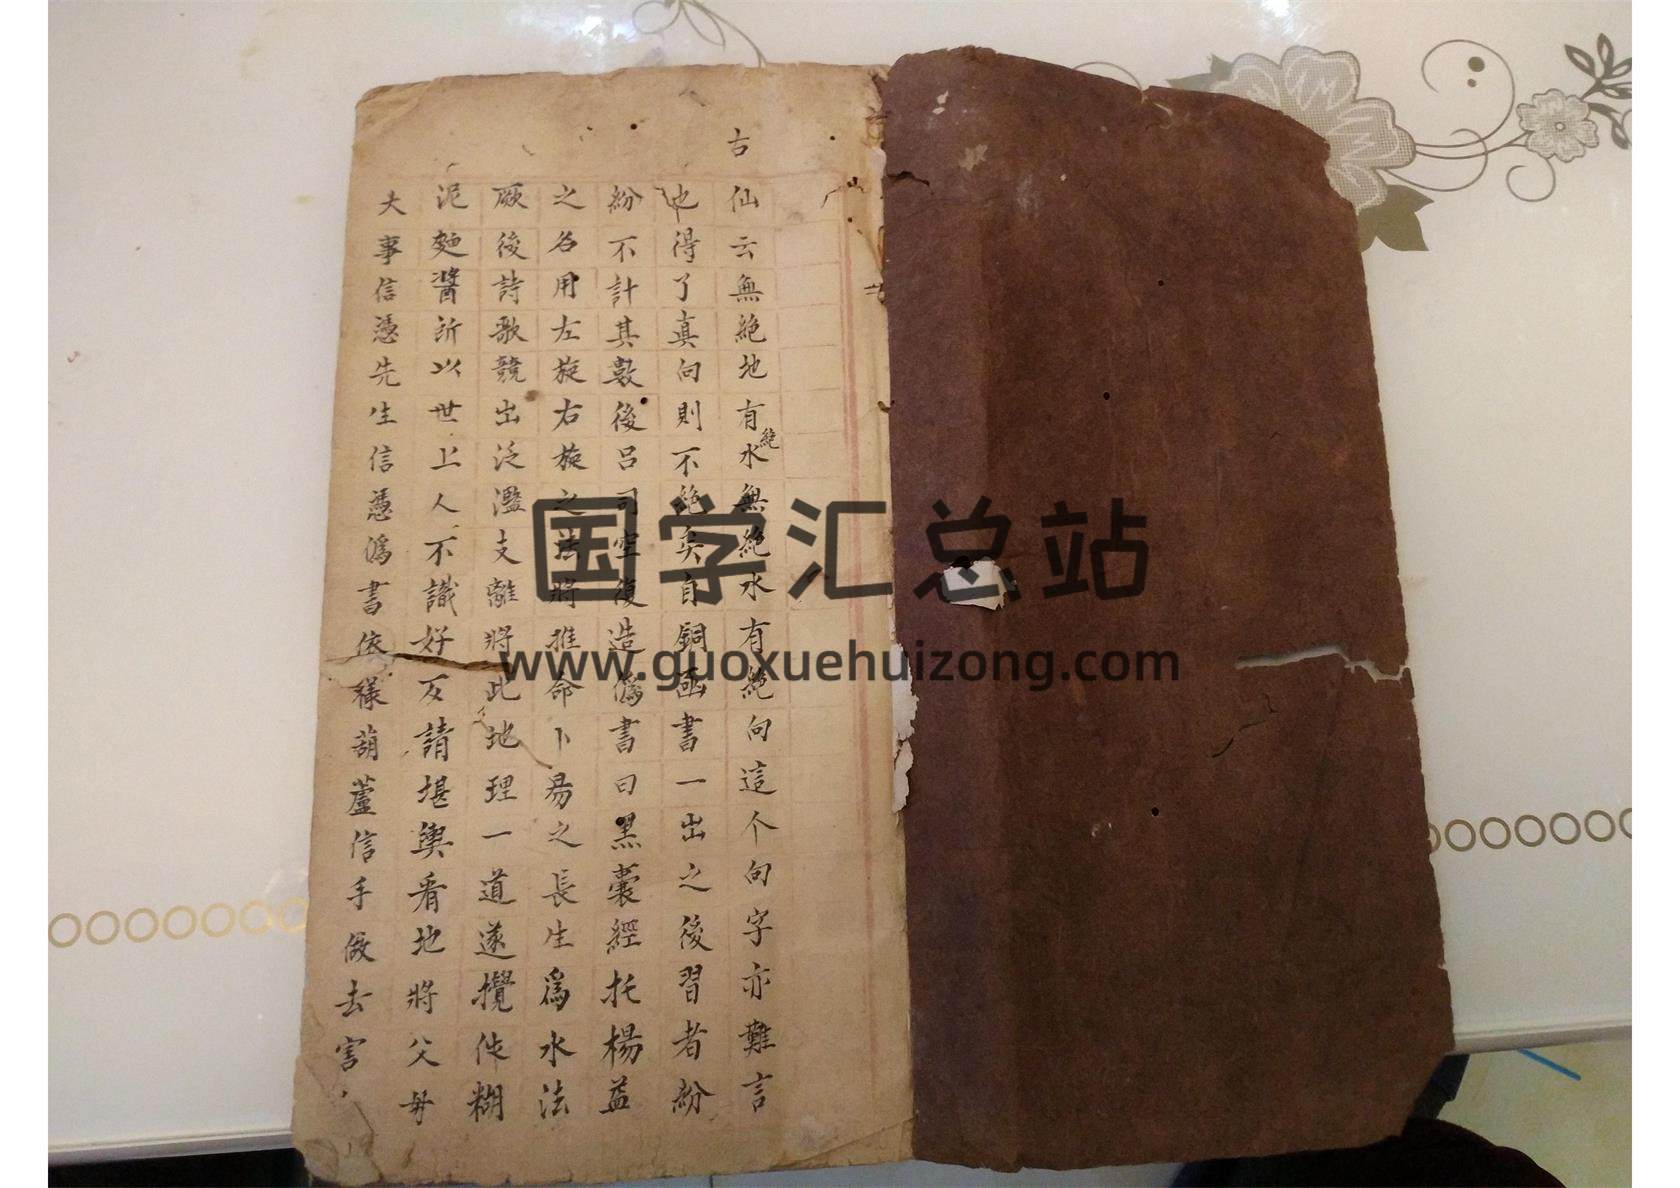 古
仙云無絶地有絶水無絶水有絶向這个向字亦難言
也得了真向則不絶矣自銅函書一出之後習者紛
紛不計其數後呂司空復造偽書曰黑囊經托楊益
之名用左旋右旋之法將推命卜易之長生爲水法
厥後詩歌競出泛濫支離將此地理一道遂攪作糊
泥麵醬所以世上人不識好反請堪輿看地將父母
大事信憑先生信憑僞書依樣葫蘆信手做去害
国学汇总站
www.guoxuehuizong.com